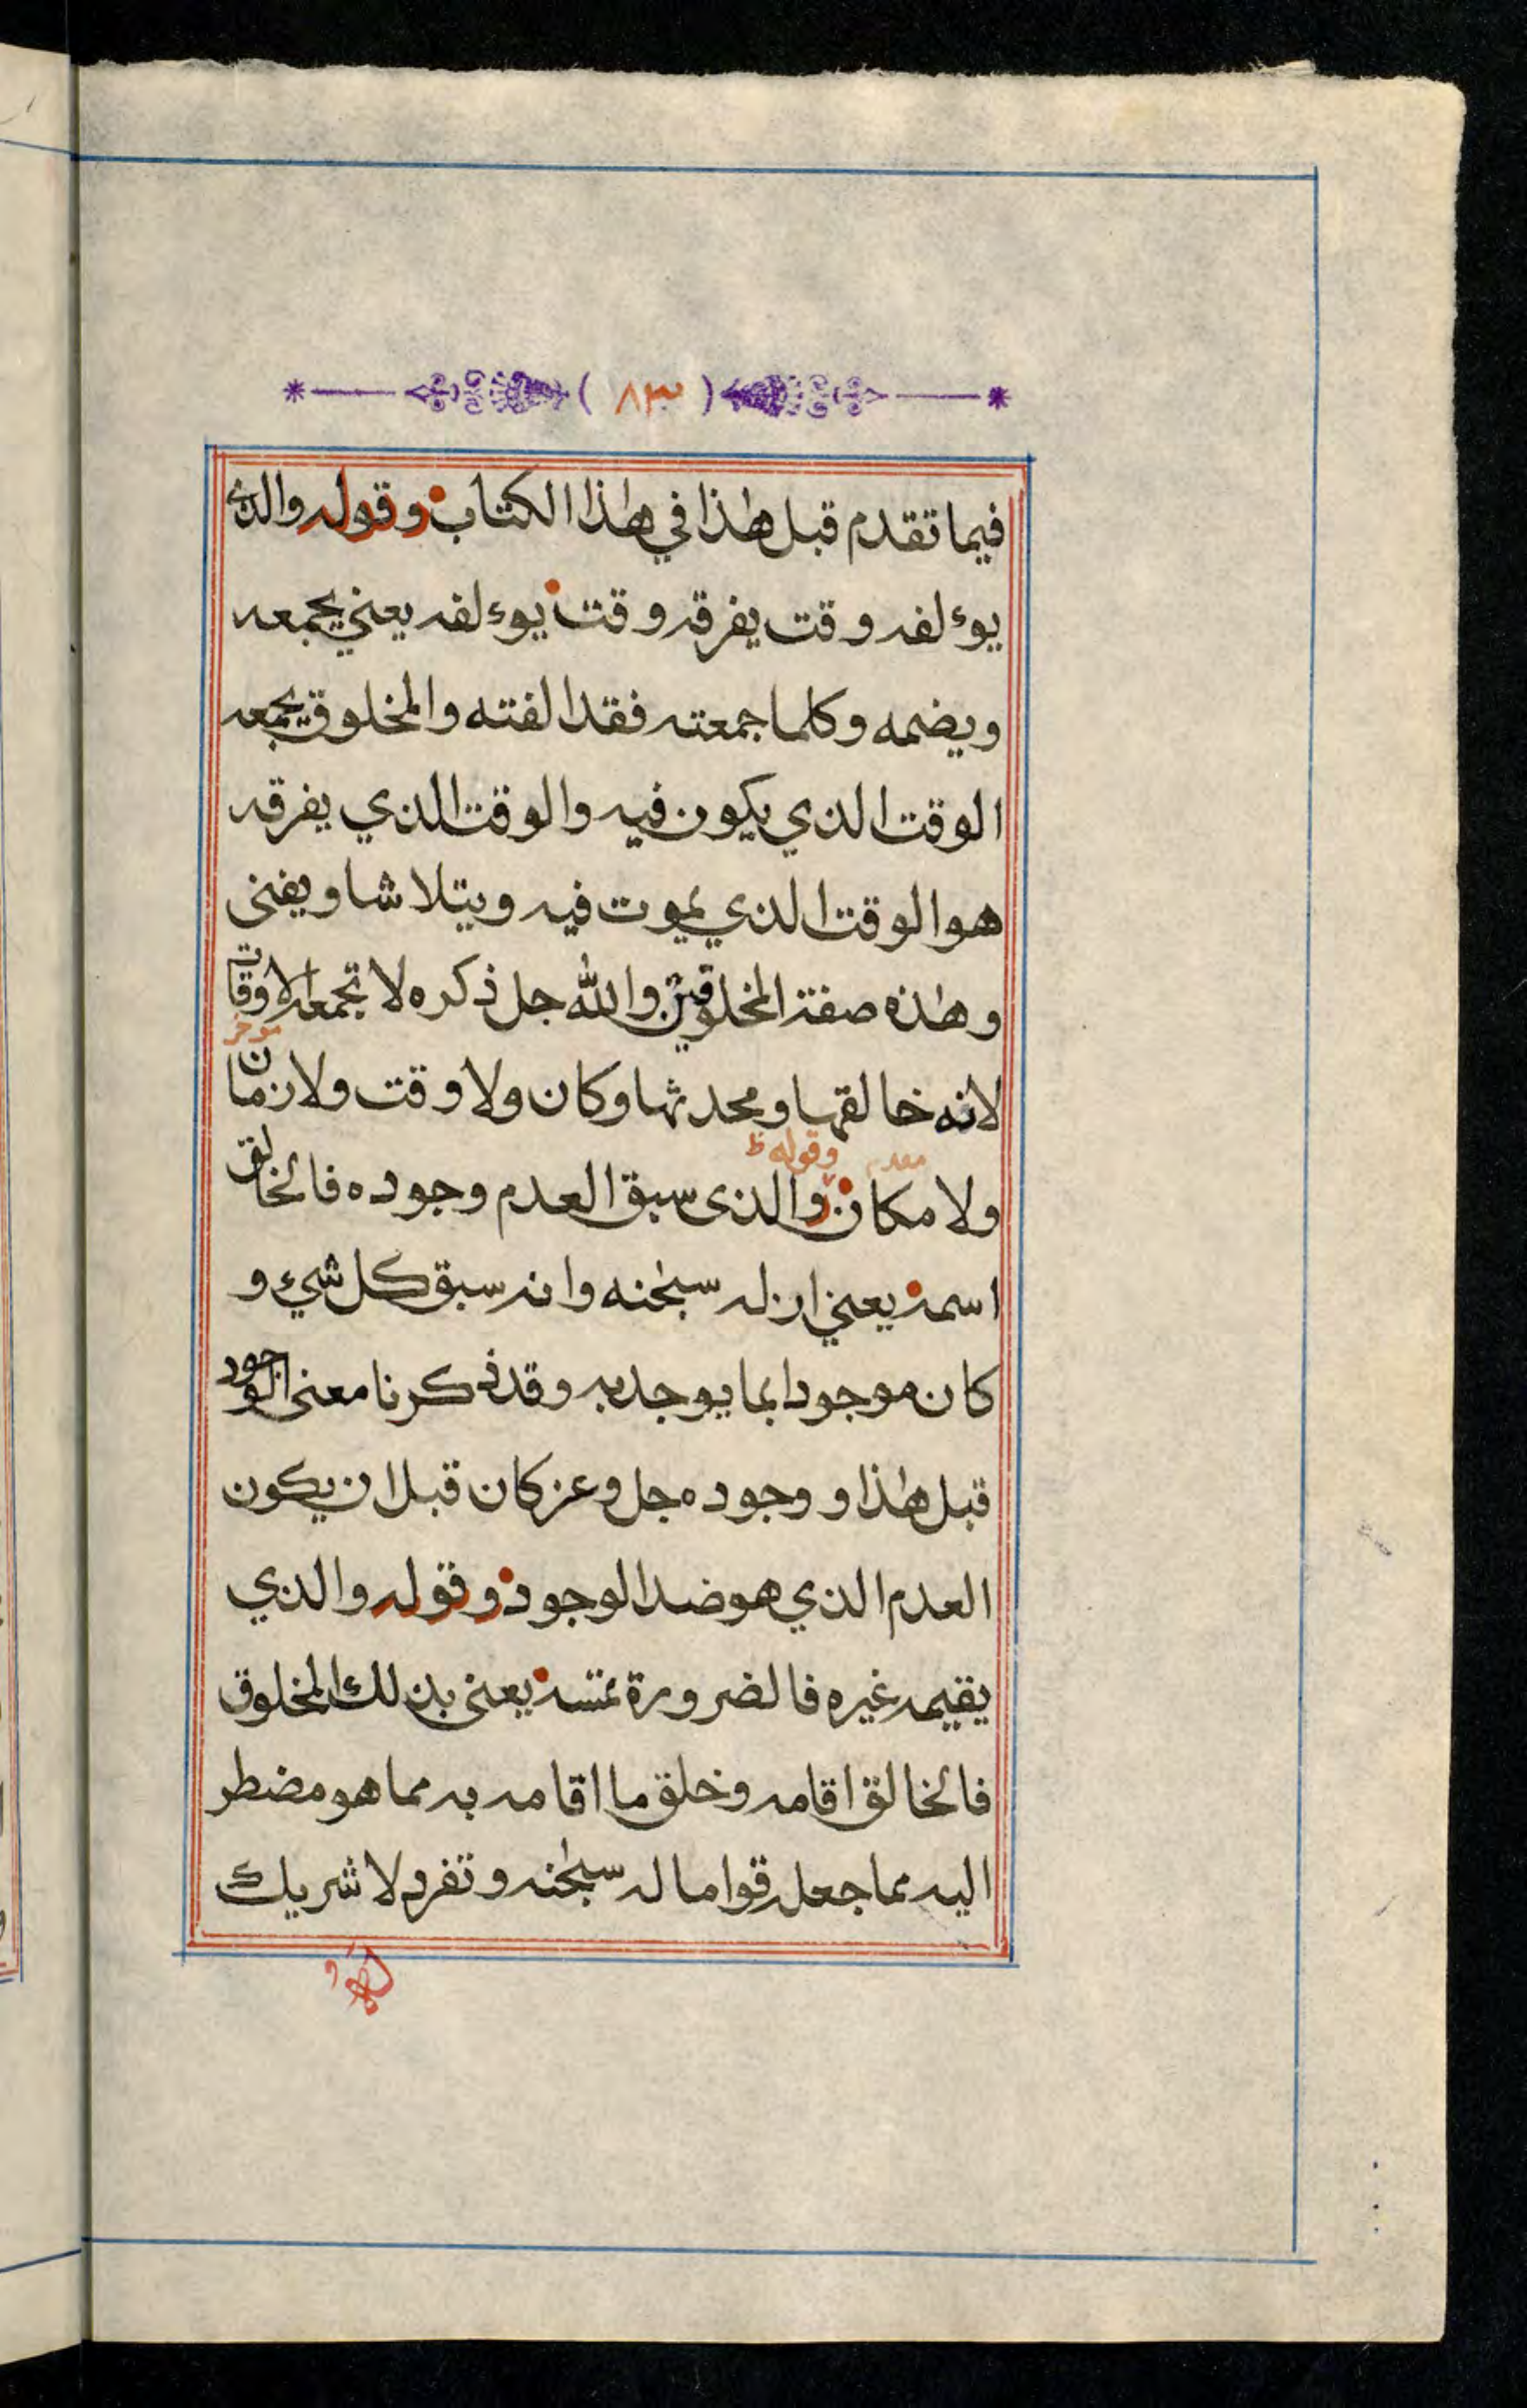 ( ٨٣ )
فيما تقدم قبل هٰذا في هٰذا الكتاب وقوله والذي
يوءلفه وقت يفرقه وقت يوءلفه يعني يجمعه
ويضمه وكلما جمعته فقد الفته والمخلوق يجمعه
الوقت الذي يكون فيه والوقت الذي يفرقه
هو الوقت الذي يموت فيه ويتلاشا ويفنى
وهٰذه صفة المخلوقين والله جل ذكره لا تجمعه الاوقات
موخر
لانه خالقها ومحدثها وكان ولا وقت ولا زمان
مقدم وقوله ظ
ولا مكان والذى سبق العدم وجوده فالخالق
اسمه يعني ازله سبحٰنه وانه سبق كل شيء و
كان موجودا بما يوجد به وقد ذكرنا معنى الوجود
قبل هٰذا و وجوده جل وعز كان قبل ان يكون
العدم الذي هو ضد الوجود وقوله والذي
يقيمه غيره فالضرورة تمسه يعنى بذلك المخلوق
فالخالق اقامه وخلق ما اقامه به مما هو مضطر
اليه مما جعله قواما له سبحٰنه وتفرد لا شريك